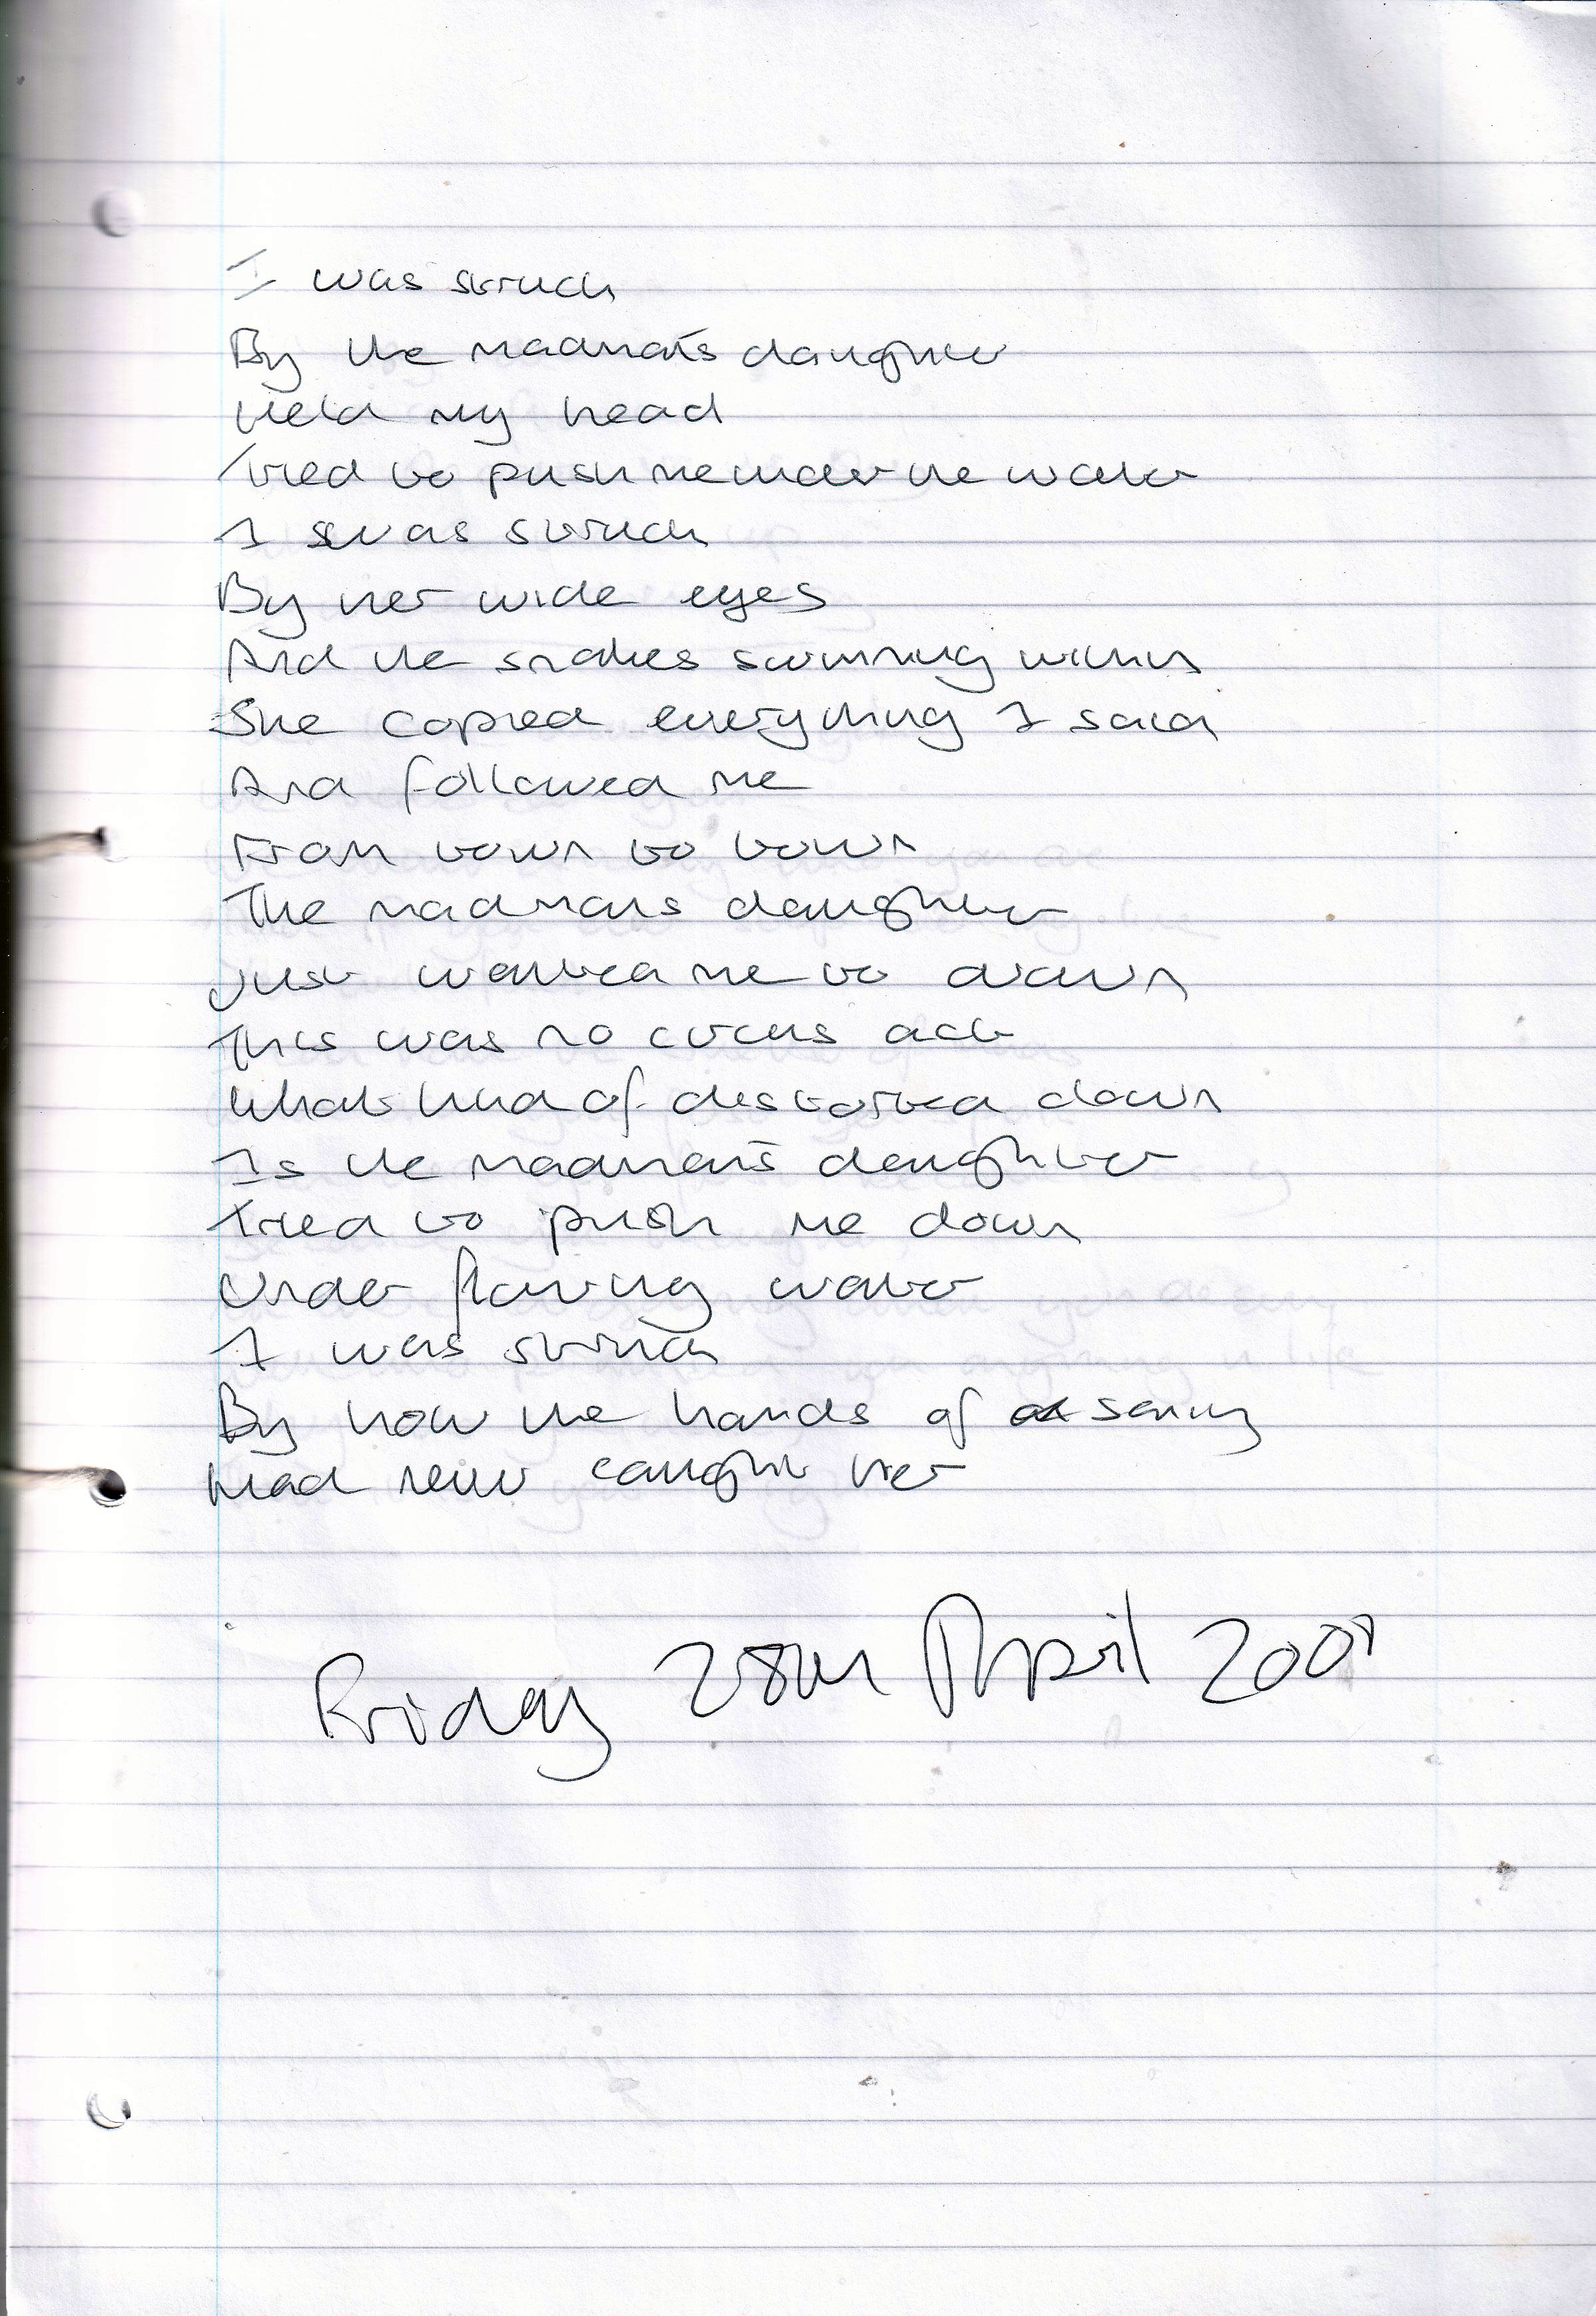 I was struck
By the madman's daughter
Held my head
Tried to push me under the water
I was struck
By her wide eyes
And the snakes swimming within
She copied everything I said
And followed me
From town to town
The madmans daughter
Just wanted me to drown
This was no circus act
What kind of distorted clown
Is the madman's daughter
Tried to push me down
Under flowing water
I was struck
By how the hands of sanity
Had never caught her
Friday 28th April